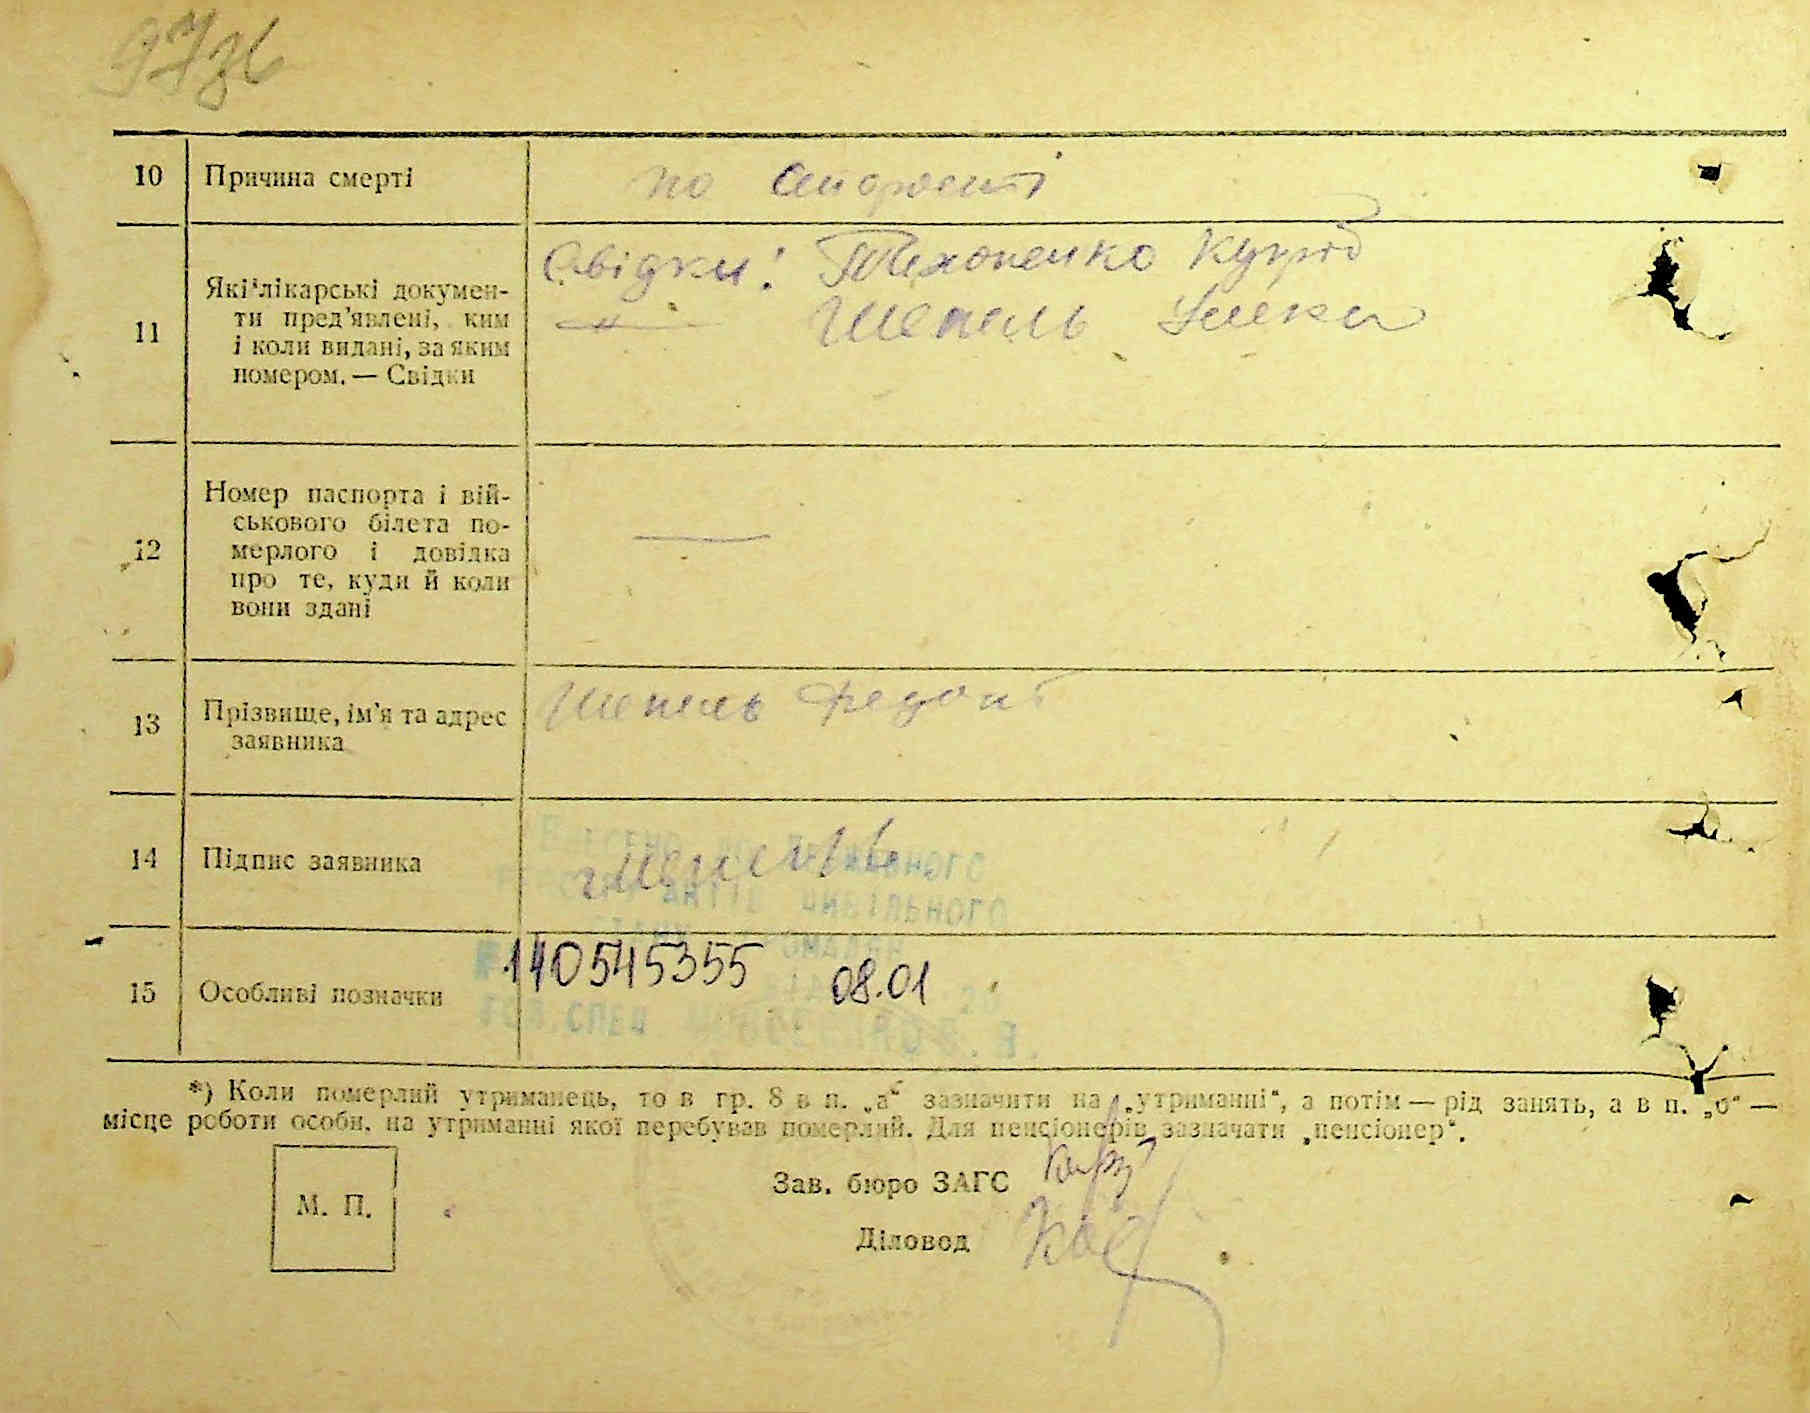 10 Причина смерті по старості
11 Які лікарські докумен-
ти пред'явлені, ким
і коли видані, за яким
номером. — Свідки
Свідки: Тихоненко
—"— Шепель
12 Номер паспорта і вій-
ськового білета по-
мерлого і довідка
про те, куди й коли
вони здані —
13 Прізвище, ім'я та адрес
заявника
Шепель Федот
14 Підпис заявника Шепель
15 Особливі позначки 140545355 08.01
*) Коли померлий утриманець, то в гр. 8 в п. „а“ зазначити на „утриманні“, а потім — рід занять, а в п. „б“ —
місце роботи особи, на утриманні якої перебував померлий. Для пенсіонерів зазначати „пенсіонер“.
М. П.
Зав. бюро ЗАГС
Діловод